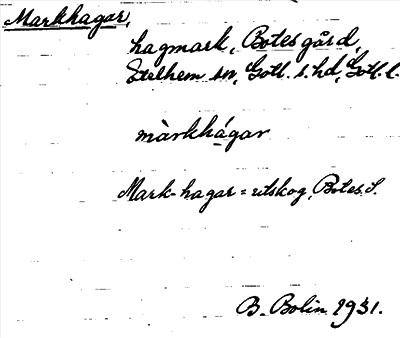 Markhagar,
hagmark, Botes gård,
Etelhem sn, Gotl. s. hd, Gotl. l.
màrkhágar
Mark-hagar = utskog, Botes. S.
B. Bolin 1931.